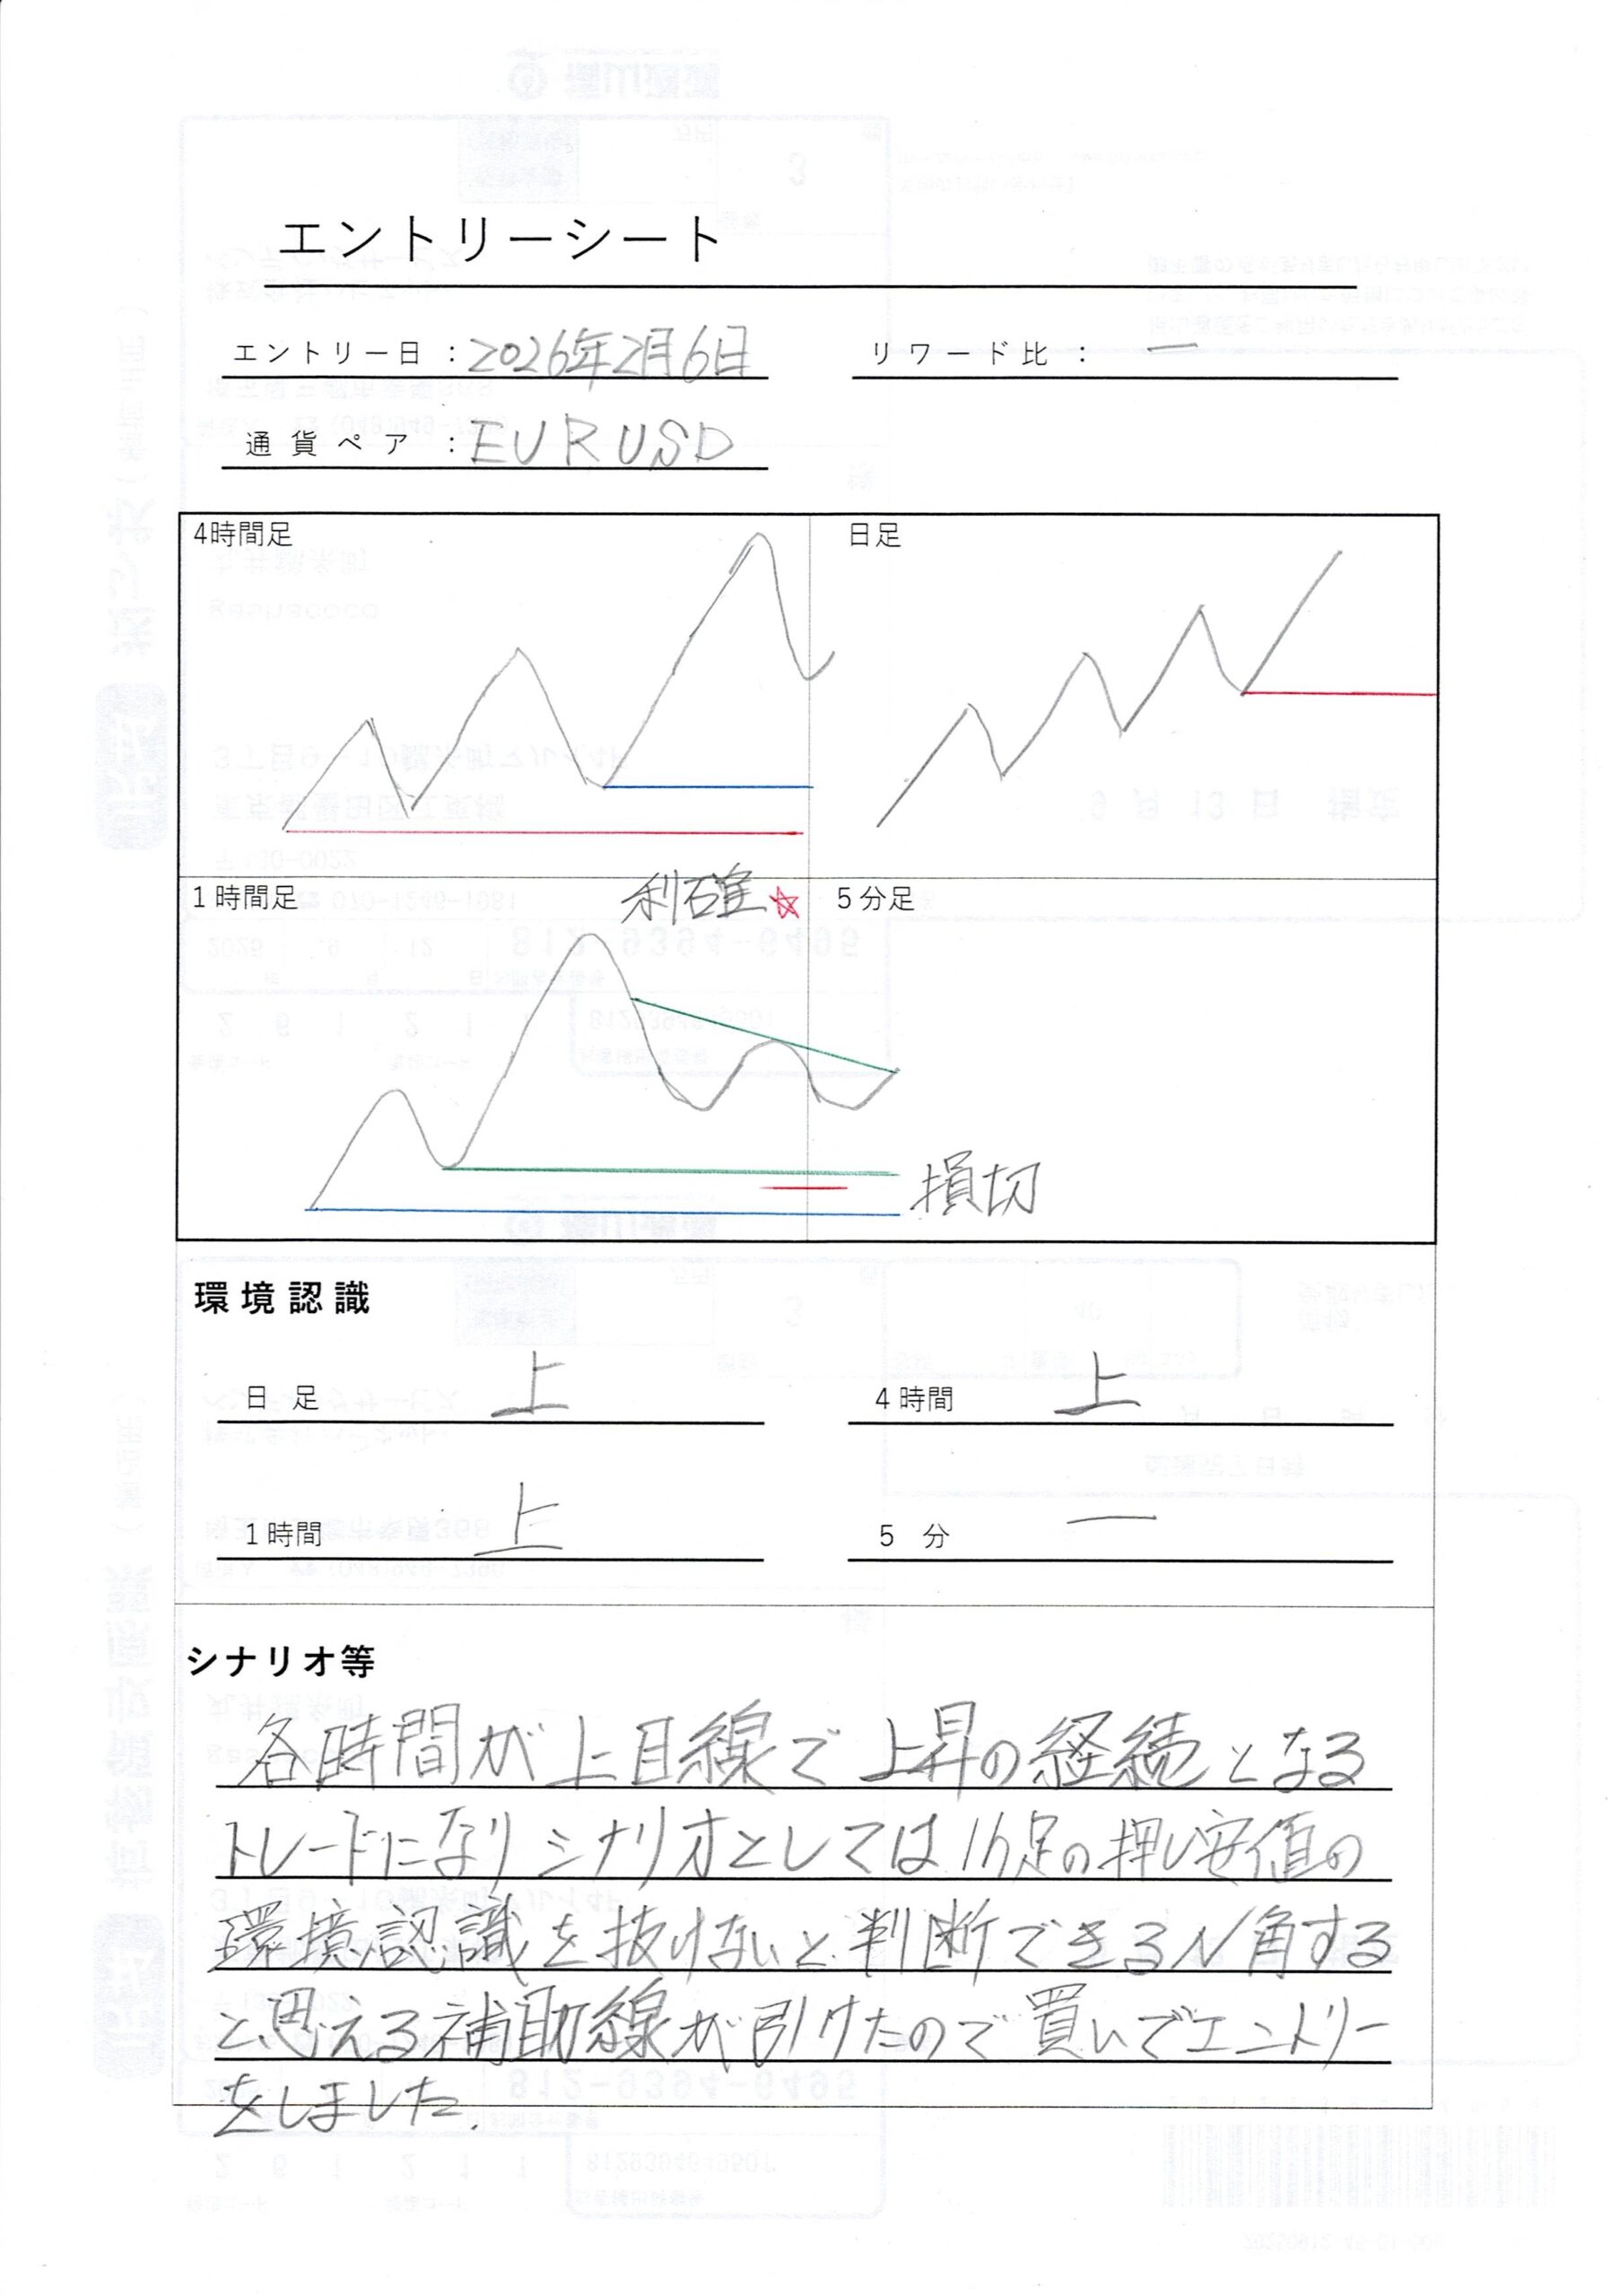 エントリーシート
エントリー日 : 2026年2月6日
リワード比 : ー
通貨ペア : EURUSD
4時間足
日足
1時間足
利確☆
5分足
損切
環境認識
日足 上
4時間 上
1時間 上
5分 ー
シナリオ等
各時間が上目線で上昇の経続となる
トレードになりシナリオとしては1h足の押し安値の
環境認識を抜けないと判断できるN角する
と思える補助線が引けたので買いでエントリー
をしました.